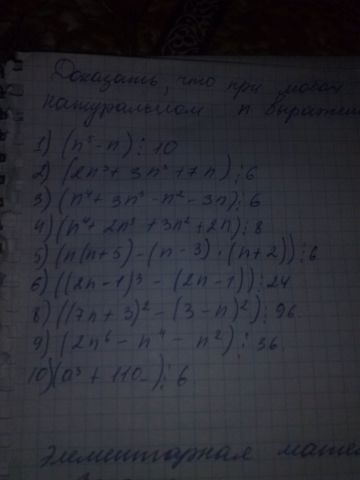 Доказать, что при любом
натуральном n выражен
1) (n⁵-n)⋮10
2) (2n³+3n²+7n)⋮6
3) (n⁴+3n³-n²-3n)⋮6
4) (n⁴+2n³+3n²+2n)⋮8
5) (n(n+5)-(n-3)·(n+2))⋮6
6) ((2n-1)³-(2n-1))⋮24
8) ((7n+3)²-(3-n)²)⋮96
9) (2n⁶-n⁴-n²)⋮36
10) (a³+11a)⋮6
Элементарная мате